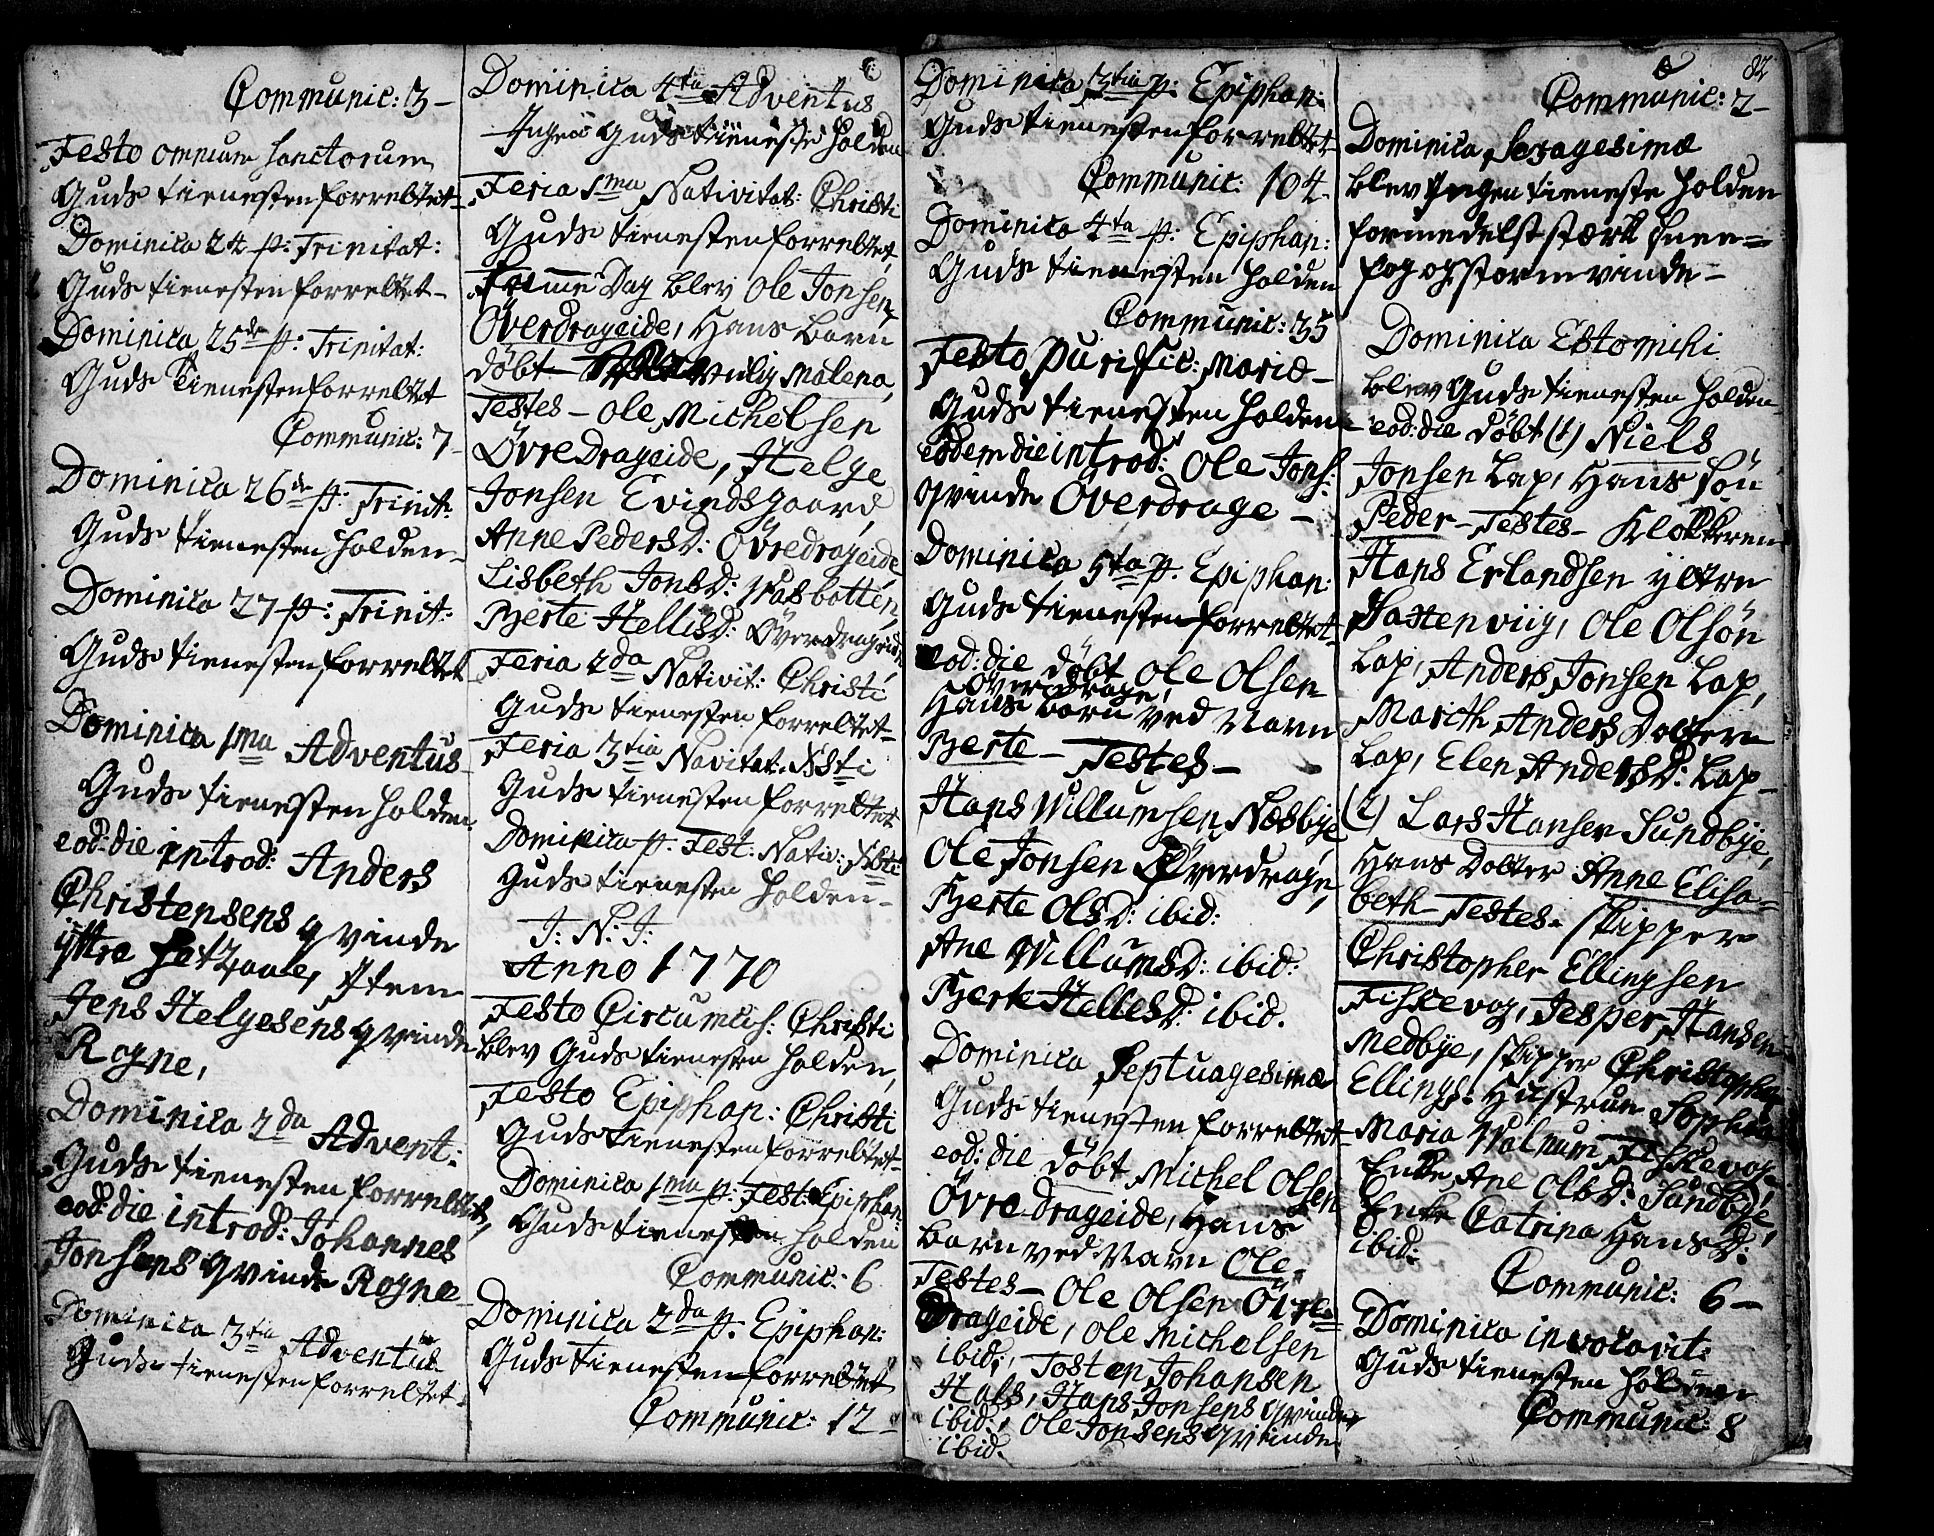 Communic: 3 –
Festo omnium sanctorum
Guds tienesten forrettet –
Dominica 24 p: Trinitat:
Guds tienesten forrettet –
Dominica 25de p: Trinitat:
Guds Tienesten forrettet
Communic: 7 –
Dominica 26de p: Trinit:
Guds tienesten holden –
Dominica 27 p: Trinit:
Guds tienesten forrettet
Dominica 1ma Adventus
Guds tienesten holden
eod: die introd: Anders
Christensens qvinde
yttre Item
Jens Helgesens qvinde
Rogne,
Dominica 2da Advent:
Guds tienesten forrettet,
eod: die introd: Johannes
Jonsens qvinde Rogne –
Dominica 3tia Adventus
Guds tienesten forrettet
Dominica 4ta Adventus
Ingen Guds tieneste holden
Feria 1ma Nativitat: Christi
Guds tienesten forrettet,
Samme Dag blev Ole Jonsen
Överdrageide, Hans barn
döbt Malena,
Testes – Ole Michelsen
ÖvreDrageide, Helge
Jonsen Evindsgaard,
Anne PedersD: Övredrageide
Lisbeth JonsD: Wasbotten,
Berte HellisD: Överdrageide
Feria 2da Nativit: Christi
Guds tienesten forrettet –
Feria 3tia Navitat: Xsti
Guds tienesten forrettet
Dominica p. Fest: Nativ: Xsti
Guds tienesten holden –
J: N: J:
Anno 1770
Festo Circumcis: Christi
blev Guds tienesten holden,
Festo Epiphan: Christi
Guds tienesten forrettet –
Dominica 1ma p: Fest: Epiphan:
Guds tienesten holden
Communic: 6
Dominica 2da p. Epiphan:
Guds tienesten forrettet
Communic: 12 –
Dominica 3tia p: Epiphan:
Guds tienesten forrettet –
Communic: 104 –
Dominica 4ta p: Epiphan:
Guds tienesten holden
Communic: 35
Festo Purific: Mariæ –
Guds tienesten holden –
eodem die introd: Ole Jons:
qvinde Överdrage –
Dominica 5ta p. Epiphan:
Guds tienesten forrettet –
eod: die döbt Ole Olsen
Överdrage,
Hans barn ved Navn
Berte – Testes –
Hans Willumsen Næsbye
Ole Jonsen Överdrage,
Berte OlsD: ibid:
Ane WillumsD: ibid:
Berte HellesD: ibid.
Dominica Septuagesima
Guds tienesten forrettet –
eod: die döbt Michel Olsen
Övre Drageide, Hans
barn ved Navn Ole –
Testes – Ole Olsen Övre
Drageide, Ole Michelsen
ibid:, Tosten Johansen
Hals, Hans Jonsens qvinde
ibid:, Ole Jonsens qvinde
ibid.
82
Communic: 2 –
Dominica Sexagesimæ
blev Ingen tieneste holden
formedelst stærk snee =
fog og storm vinde –
Dominica Estomichi
blev Guds tienesten holden
eod: die döbt (1) Niels
Jonsen Lap, Hans sön
Peder – Testes – Klokkeren
Hans Erlandsen yttre
Hattenviig, Ole Olsön
Lap, Anders Jonsen Lap,
Marith Anders Dottern
Lap, Elen AndersD: Lap –
(2) Lars Hansen Sundbÿe,
Hans Dotter Anne Elisa-
beth – Testes – skipper
Christopher Ellingsen
Fiskevog, Jesper Hansen
Medbye, skipper Christopher
Ellings: Hustrue Sophia
Maria Walnum Fiskevog,
Enke Ane OlsD: Sundbye,
Enke Catrina HansD:
ibid:
Communic: 6 –
Dominica invocavit:
Guds tienesten holden
Communic: 8